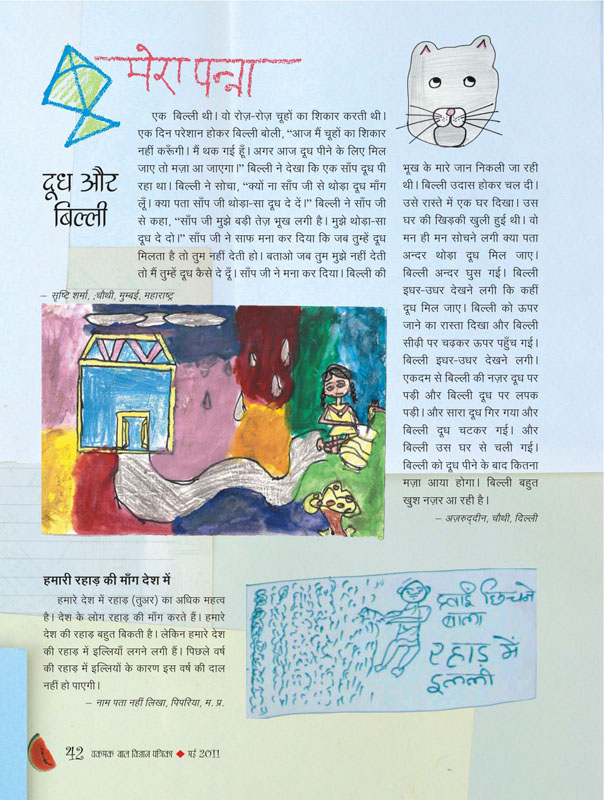 मेरा पन्ना
दूध और
बिल्ली
एक बिल्ली थी। वो रोज़-रोज़ चूहों का शिकार करती थी।
एक दिन परेशान होकर बिल्ली बोली, “आज मैं चूहों का शिकार
नहीं करूँगी। मैं थक गई हूँ। अगर आज दूध पीने के लिए मिल
जाए तो मज़ा आ जाएगा।” बिल्ली ने देखा कि एक साँप दूध पी
रहा था। बिल्ली ने सोचा, “क्यों ना साँप जी से थोड़ा दूध माँग
लूँ। क्या पता साँप जी थोड़ा-सा दूध दे दें।” बिल्ली ने साँप जी
से कहा, “साँप जी मुझे बड़ी तेज़ भूख लगी है। मुझे थोड़ा-सा
दूध दे दो।” साँप जी ने साफ मना कर दिया कि जब तुम्हें दूध
मिलता है तो तुम नहीं देती हो। बताओ जब तुम मुझे नहीं देती
तो मैं तुम्हें दूध कैसे दे दूँ। साँप जी ने मना कर दिया। बिल्ली की
भूख के मारे जान निकली जा रही
थी। बिल्ली उदास होकर चल दी।
उसे रास्ते में एक घर दिखा। उस
घर की खिड़की खुली हुई थी। वो
मन ही मन सोचने लगी क्या पता
अन्दर थोड़ा दूध मिल जाए।
बिल्ली अन्दर घुस गई। बिल्ली
इधर-उधर देखने लगी कि कहीं
दूध मिल जाए। बिल्ली को ऊपर
जाने का रास्ता दिखा और बिल्ली
सीढ़ी पर चढ़कर ऊपर पहुँच गई।
बिल्ली इधर-उधर देखने लगी।
एकदम से बिल्ली की नज़र दूध पर
पड़ी और बिल्ली दूध पर लपक
पड़ी। और सारा दूध गिर गया और
बिल्ली दूध चटकर गई। और
बिल्ली उस घर से चली गई।
बिल्ली को दूध पीने के बाद कितना
मज़ा आया होगा। बिल्ली बहुत
खुश नज़र आ रही है।
– अज़रुद्दीन, चौथी, दिल्ली
– सृष्टि शर्मा, ;चौथी, मुम्बई, महाराष्ट्र
हमारी रहाड़ की माँग देश में
हमारे देश में रहाड़ (तुअर) का अधिक महत्व
है। देश के लोग रहाड़ की माँग करते हैं। हमारे
देश की रहाड़ बहुत बिकती है। लेकिन हमारे देश
की रहाड़ में इल्लियाँ लगने लगी हैं। पिछले वर्ष
की रहाड़ में इल्लियों के कारण इस वर्ष की दाल
नहीं हो पाएगी।
– नाम पता नहीं लिखा, पिपरिया, म. प्र.
दवाई छिचने
वाला
रहाड़ में
इल्ली
42 चकमक बाल विज्ञान पत्रिका ◆ मई 2011